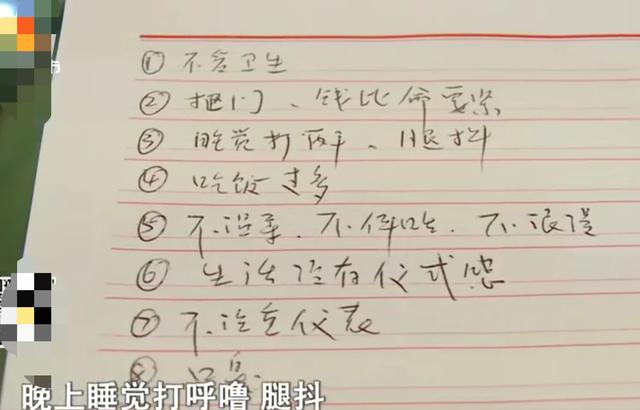 ① 不含卫生
② 抠门、钱比命要紧
③ 睡觉打呼、腿抖
④ 吃饭过多
⑤ 不温柔、不体贴、不浪漫
⑥ 生活没有仪式感
⑦ 不注重仪表
⑧ 口臭
晚上睡觉打呼噜 腿抖